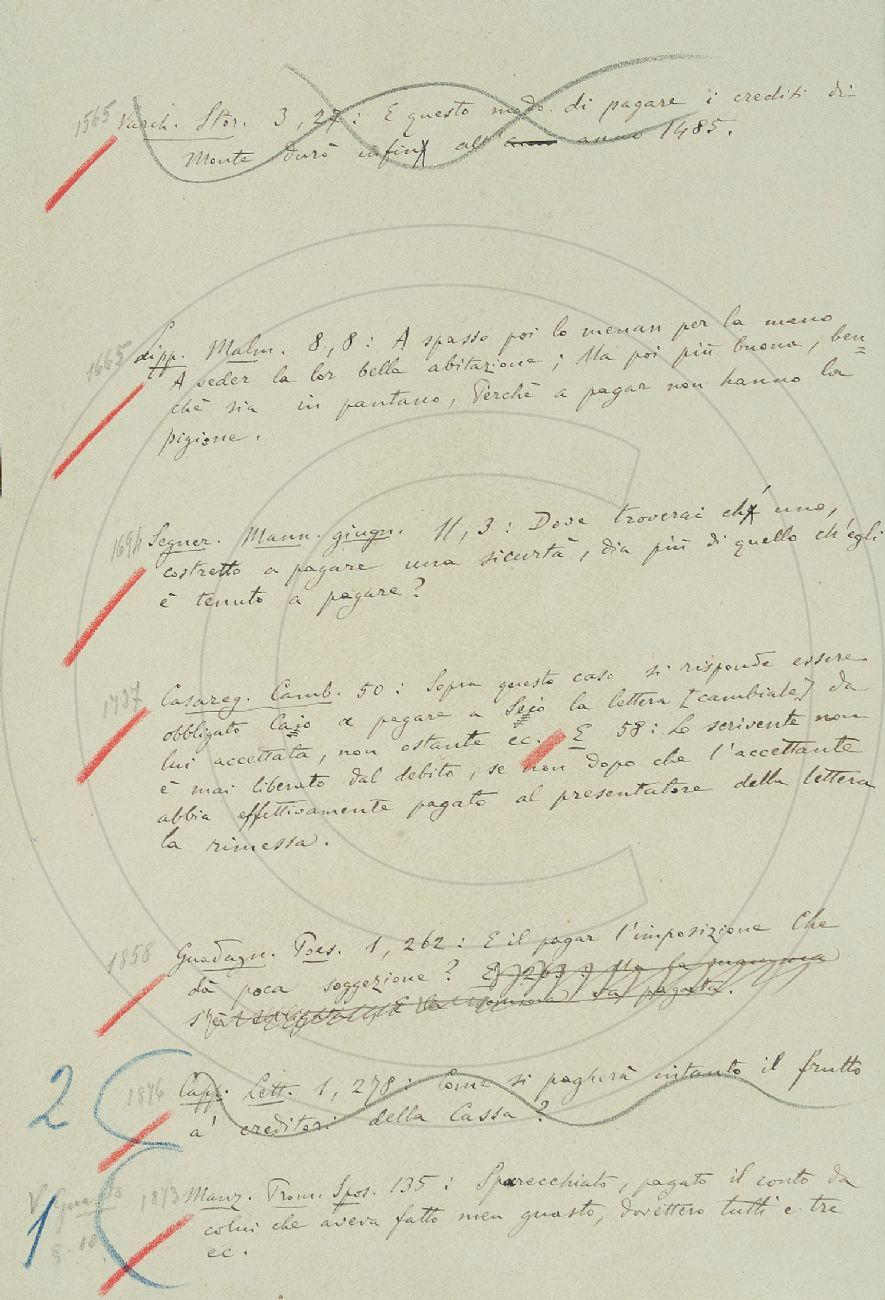 1565 Varch. Stor. 3, 27: E questo modo di pagare i crediti di
Monte durò infin all' anno 1485.
1665 Lipp. Malm. 8, 8: A spasso poi lo menan per la mano
A seder la lor bella abitazione; Ma poi più buona, ben=
chè sia in pantano, Perchè a pagar non hanno la
pigione.
1694 Segner. Mann. giugn. 11, 3: Dove troverai ch' uno,
costretto a pagare una sicurtà, dia più di quello ch'egli
è tenuto a pagare?
1737 Casareg. Camb. 50: Sopra questo caso si risponde essere
obbligato Cajo a pagare a Sejo la lettera [cambiale] da
lui accettata, non ostante ec. E 58: Lo scrivente non
è mai liberato dal debito, se non dopo che l'accettante
abbia effettivamente pagato al presentatore della lettera
la rimessa.
1858 Guadagn. Poes. 1, 262: E il pagar l'imposizione Che
dà poca soggezione? E, 263: Ma la mamma
s'è E la somma va pagata.
2 1846 Capp. Lett. 1, 278: Come si pagherà intanto il frutto
a' creditori della Cassa?
1873 Manz. Prom. Spos. 135: Sparecchiato, pagato il conto da
V. Guasto
1 colui che aveva fatto men guasto, dovettero tutti e tre
§. 10
ec.